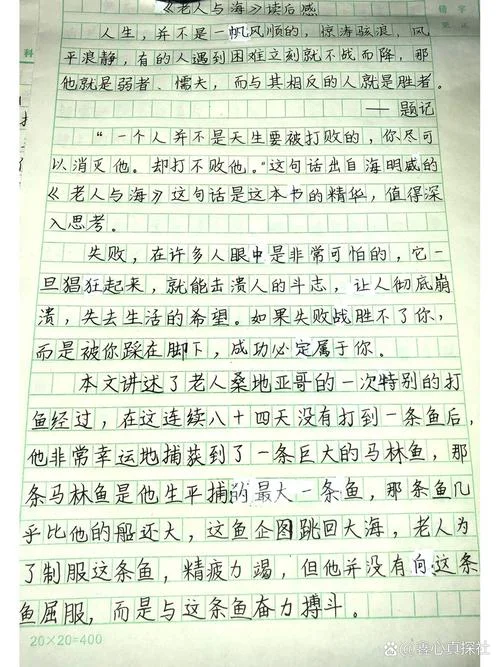 《老人与海》读后感
人生，并不是一帆风顺的，惊涛骇浪，风
平浪静，有的人遇到困难立刻就不战而降，那
他就是弱者、懦夫，而与其相反的人就是胜者。
——题记
“一个人并不是天生要被打败的，你尽可
以消灭他。却打不败他。”这句话出自海明威的
《老人与海》这句话是这本书的精华，值得深
入思考。
失败，在许多人眼中是非常可怕的，它一
旦猖狂起来，就能击溃人的斗志，让人彻底崩
溃，失去生活的希望。如果失败战胜不了你，
而是被你踩在脚下，成功必定属于你。
本文讲述了老人桑地亚哥的一次特别的打
鱼经过，在这连续八十四天没有打到一条鱼后，
他非常幸运地捕获到了一条巨大的马林鱼，那
条马林鱼是他生平捕的最大一条鱼，那条鱼几
乎比他的船还大，这鱼企图跳回大海，老人为
了制服这条鱼，精疲力竭，但他并没有向这条
鱼屈服，而是与这条鱼奋力搏斗。
20×20=400
错字
更正
科
@鑫心真探社